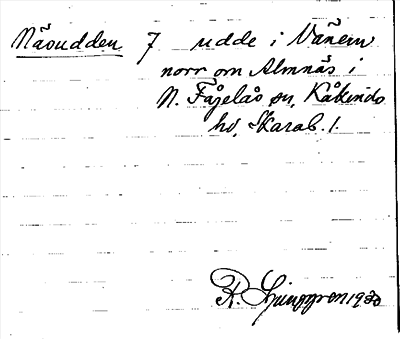 Näsudden 7 udde i Vänern
norr om Almnäs i
N. Fågelås sn, Kåkinds
hd, Skarab. l.
R. Ljunggren 1930